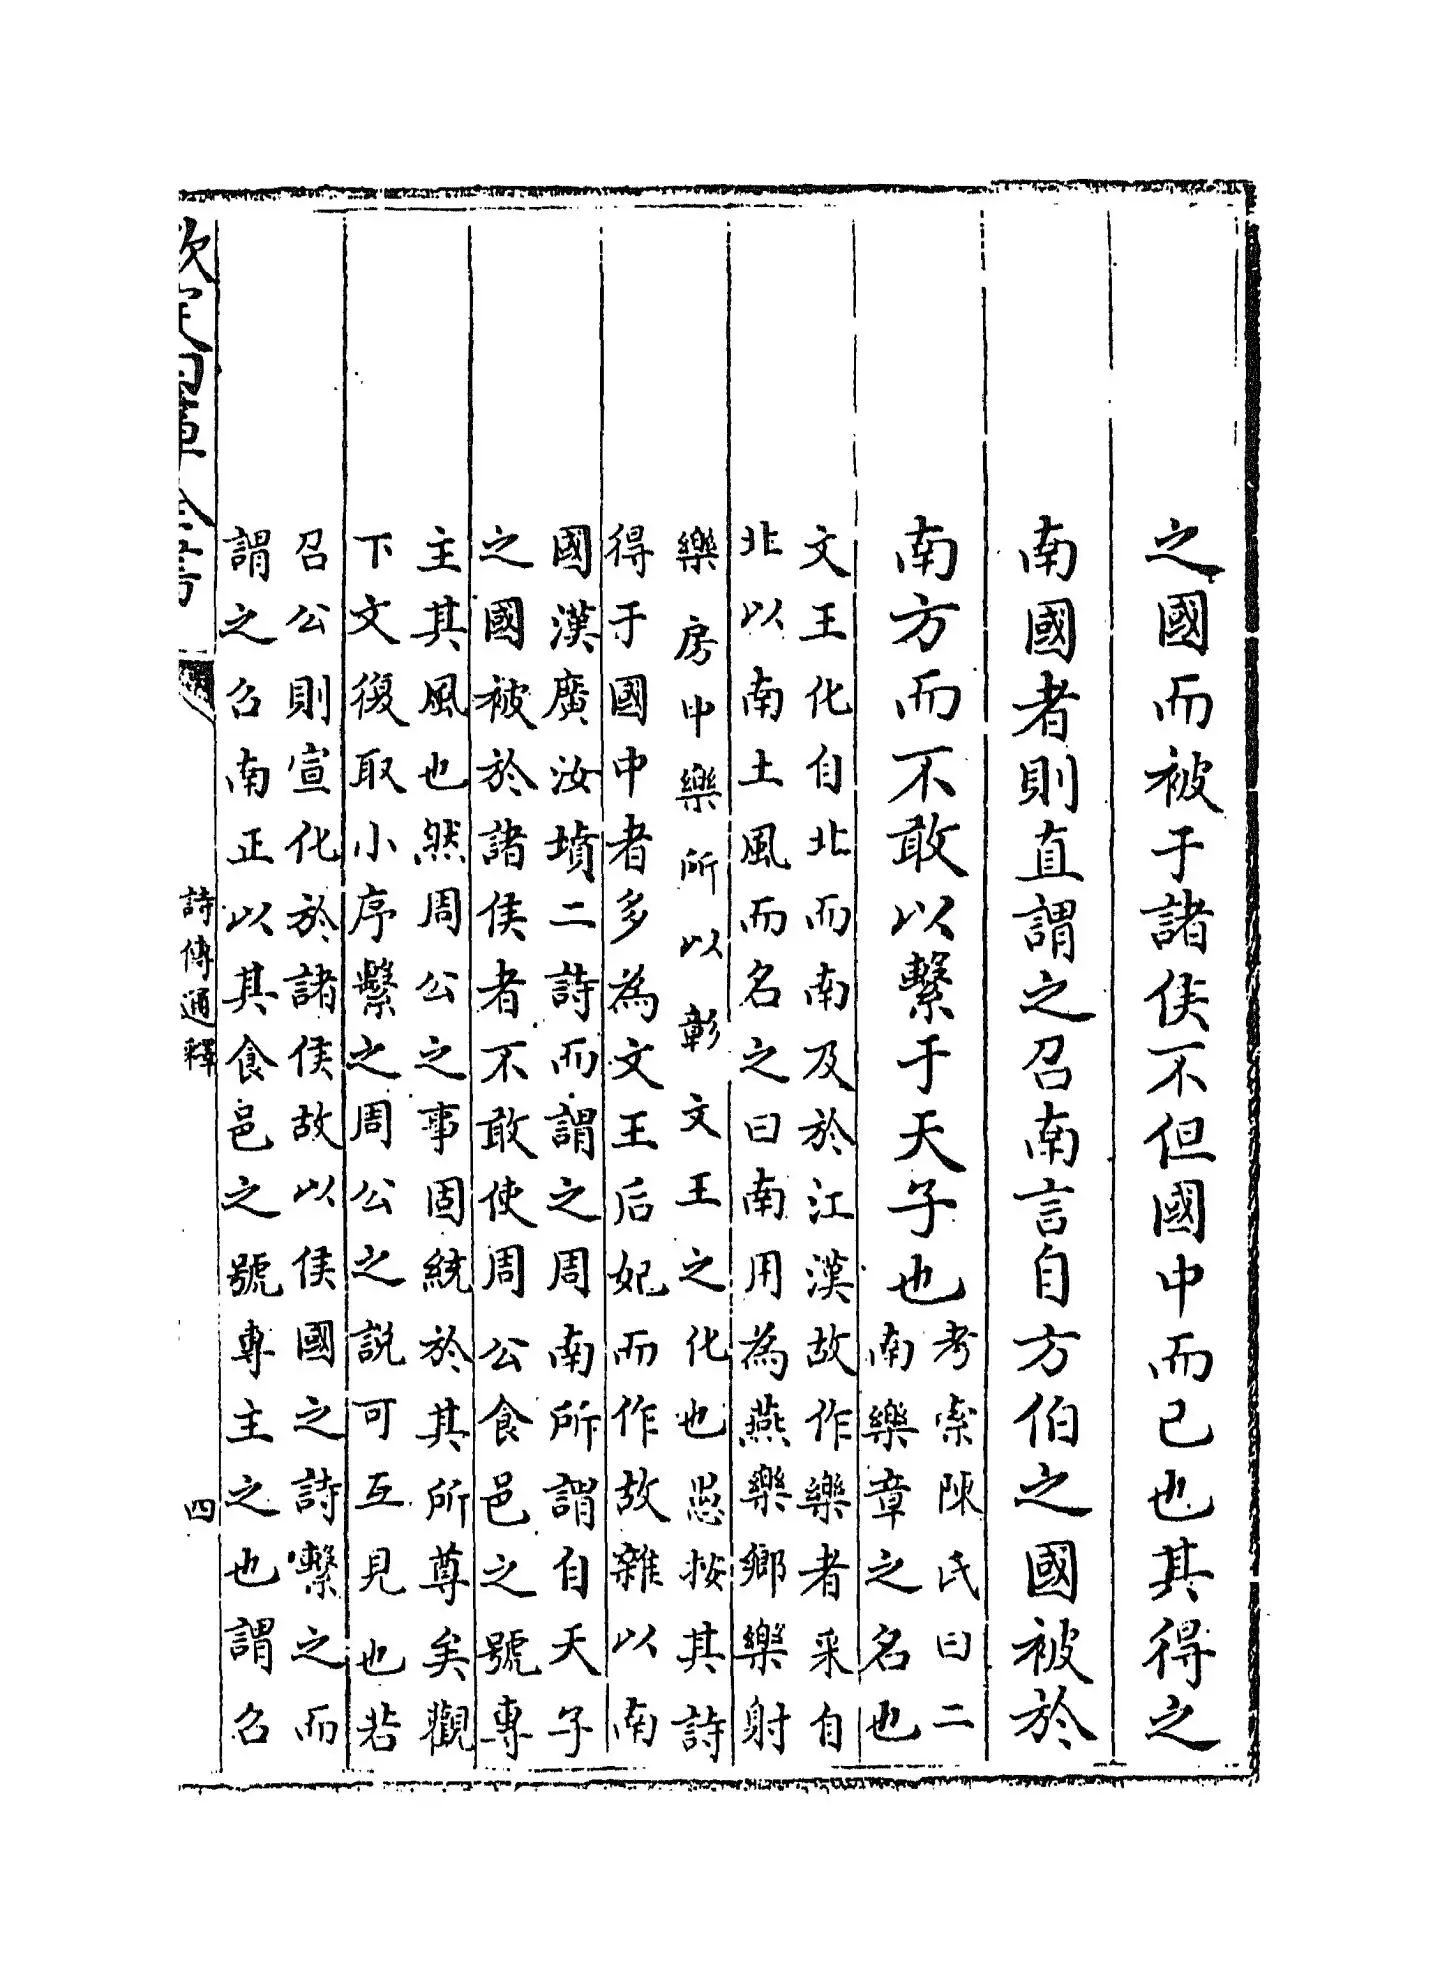 之國而被于諸侯不但國中而已也其得之
南國者則直謂之召南言自方伯之國被於
南方而不敢以繫于天子也
考索陳氏曰二
南樂章之名也
文王化自北而南及於江漢故作樂者采自
北以南土風而名之曰南用為燕樂鄉樂射
樂房中樂所以彰文王之化也愚按其詩
得于國中者多為文王后妃而作故雜以南
國漢廣汝墳二詩而謂之周南所謂自天子
之國被於諸侯者不敢使周公食邑之號專
主其風也然周公之事固統於其所尊矣觀
下文復取小序繫之周公之説可互見也若
召公則宣化於諸侯故以侯國之詩繫之而
謂之召南正以其食邑之號專主之也謂召
欽定四庫全書
詩傳通釋
四